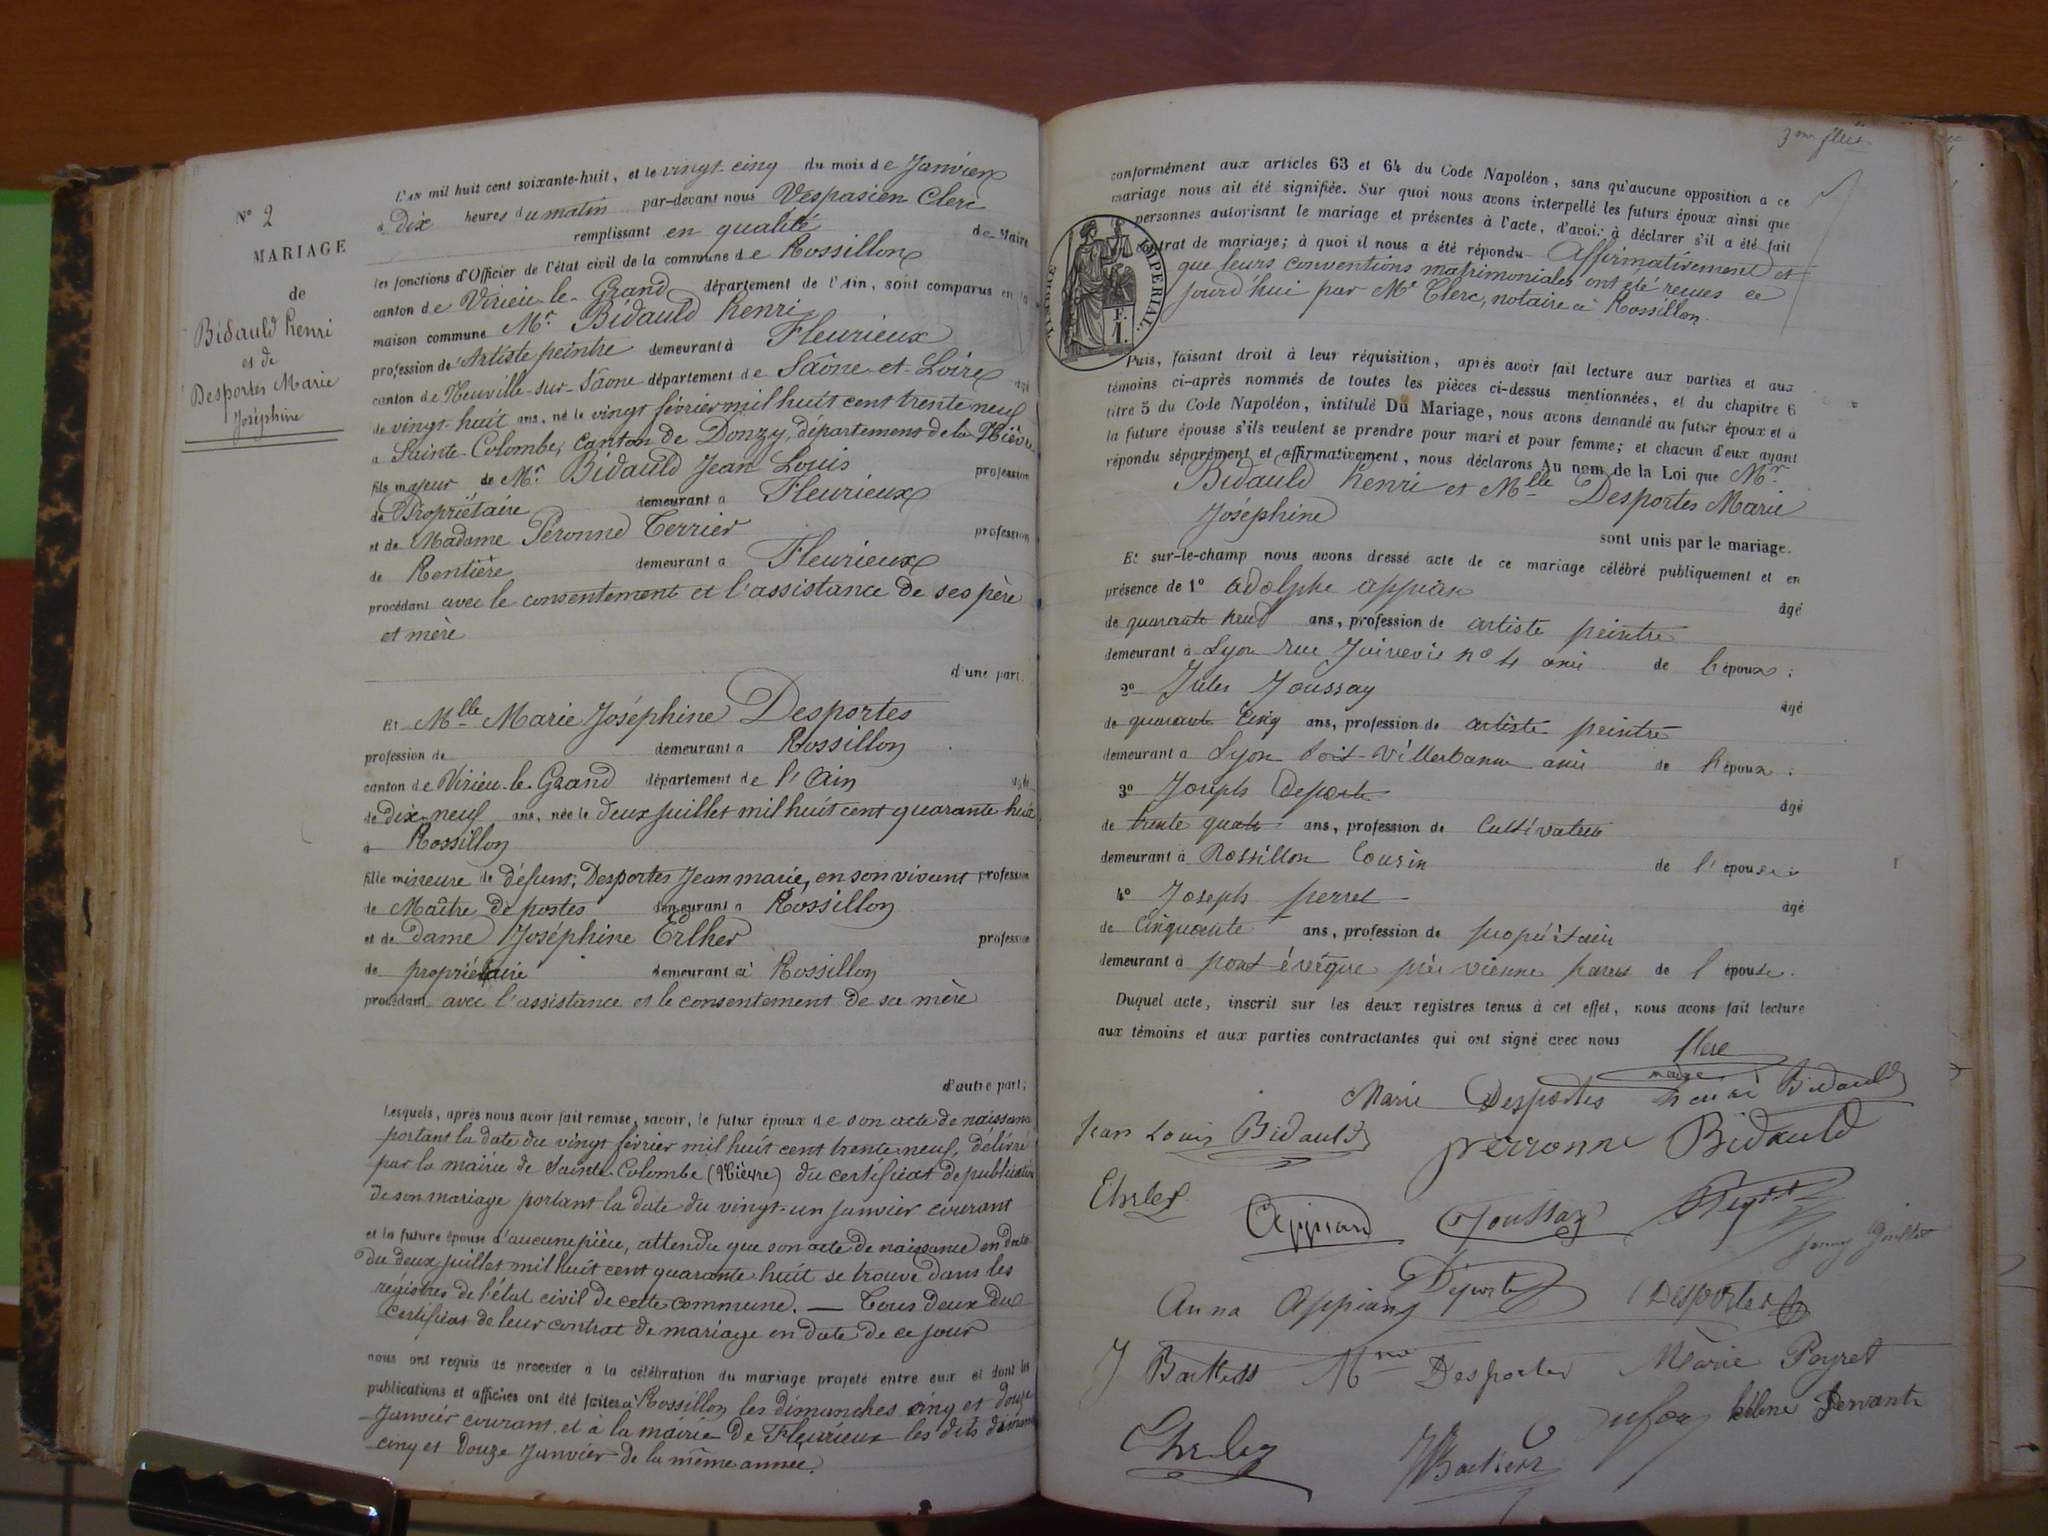 Nº 2
MARIAGE
de
Bidauld henri
et de
Desportes Marie
Joséphine
L'an mil huit cent soixante-huit, et le vingt-cinq du mois de Janvier
à dix heures du matin par-devant nous Vespasien Clerc
remplissant en qualité de Maire
les fonctions d'Officier de l'état civil de la commune de Rossillon
canton de Virieu-le-Grand département de l'Ain, sont comparus en la
maison commune Mr. Bidauld henri
profession de Artiste peintre demeurant à Fleurieux
canton de Neuville-sur-Sâone département de Sâone-et-Loire agé
de vingt-huit ans, né le vingt février mil huit cent trente neuf
à Sainte-Colombe, canton de Donzy, département de la Nièvre
fils majeur de Mr. Bidauld Jean Louis profession
de Propriétaire demeurant à Fleurieux
et de Madame Péronne Terrier profession
de Rentière demeurant à Fleurieux
procédant avec le consentement et l'assistance de ses père
et mère
d'une part.
Et Mlle Marie Joséphine Desportes
profession de demeurant à Rossillon
canton de Virieu-le-Grand département de l'Ain agée
de dix-neuf ans, née le deux juillet mil huit cent quarante huit
à Rossillon
fille mineure de défunt, Desportes Jean marie, en son vivant profession
de Maître de postes demeurant à Rossillon
et de dame Joséphine Erlher profession
de propriétaire demeurant à Rossillon
procédant avec l'assistance et le consentement de sa mère
d'autre part;
Lesquels, après nous avoir fait remise, savoir, le futur époux de son acte de naissance
portant la date du vingt février mil huit cent trente neuf, délivré
par la mairie de Sainte-Colombe (Nièvre) du certificat de publication
de son mariage portant la date du vingt-un janvier courant
et la future épouse d'aucune pièce, attendu que son acte de naissance en date
du deux juillet mil huit cent quarante huit se trouve dans les
régistres de l'état civil de cette commune. — Tous deux du
certificat de leur contrat de mariage en date de ce jour
nous ont requis de procéder à la célébration du mariage projeté entre eux et dont les
publications et affiches ont été faites à Rossillon les dimanches cinq et douze
Janvier courant et à la mairie de Fleurieux les dits dimanches
cinq et douze Janvier de la même année.
conformément aux articles 63 et 64 du Code Napoléon, sans qu'aucune opposition à ce
mariage nous ait été signifiée. Sur quoi nous avons interpellé les futurs époux ainsi que
personnes autorisant le mariage et présentes à l'acte, d'avoir à déclarer s'il a été fait
contrat de mariage; à quoi il nous a été répondu Affirmativement et
que leurs conventions matrimoniales ont été reçues ce
jourd'hui par Me Clerc, notaire à Rossillon.
TIMBRE IMPERIAL
1 F.
Puis, faisant droit à leur réquisition, après avoir fait lecture aux parties et aux
témoins ci-après nommés de toutes les pièces ci-dessus mentionnées, et du chapitre 6
titre 5 du Code Napoléon, intitulé Du Mariage, nous avons demandé au futur époux et à
la future épouse s'ils veulent se prendre pour mari et pour femme; et chacun d'eux ayant
répondu séparément et affirmativement, nous déclarons Au nom de la Loi que Mr.
Bidauld henri et Mlle Desportes Marie
Joséphine
sont unis par le mariage.
Et sur-le-champ nous avons dressé acte de ce mariage célébré publiquement et en
présence de 1º adolphe appian âgé
de quarante neuf ans, profession de artiste peintre
demeurant à Lyon rue Juiverie nº 4 ami de l'époux;
2º Jules Joussay âgé
de quarante cinq ans, profession de artiste peintre
demeurant à Lyon Villerbanne ami de l'époux;
3º Joseph Deporte âgé
de trente quatre ans, profession de Cultivateur
demeurant à Rossillon Cousin de l'épouse;
4º Joseph perret âgé
de Cinquante ans, profession de propriétaire
demeurant à pont évêque près vienne parent de l'épouse.
Duquel acte, inscrit sur les deux registres tenus à cet effet, nous avons fait lecture
aux témoins et aux parties contractantes qui ont signé avec nous
Clerc
maire
Marie Desportes henri Bidauld
Jean Louis Bidauld perronne Bidauld
Ehrler
Appian Joussay
Anna Appian Déporte Desportes
Mme Desportes Marie Peyret
Dufour hélène Servant